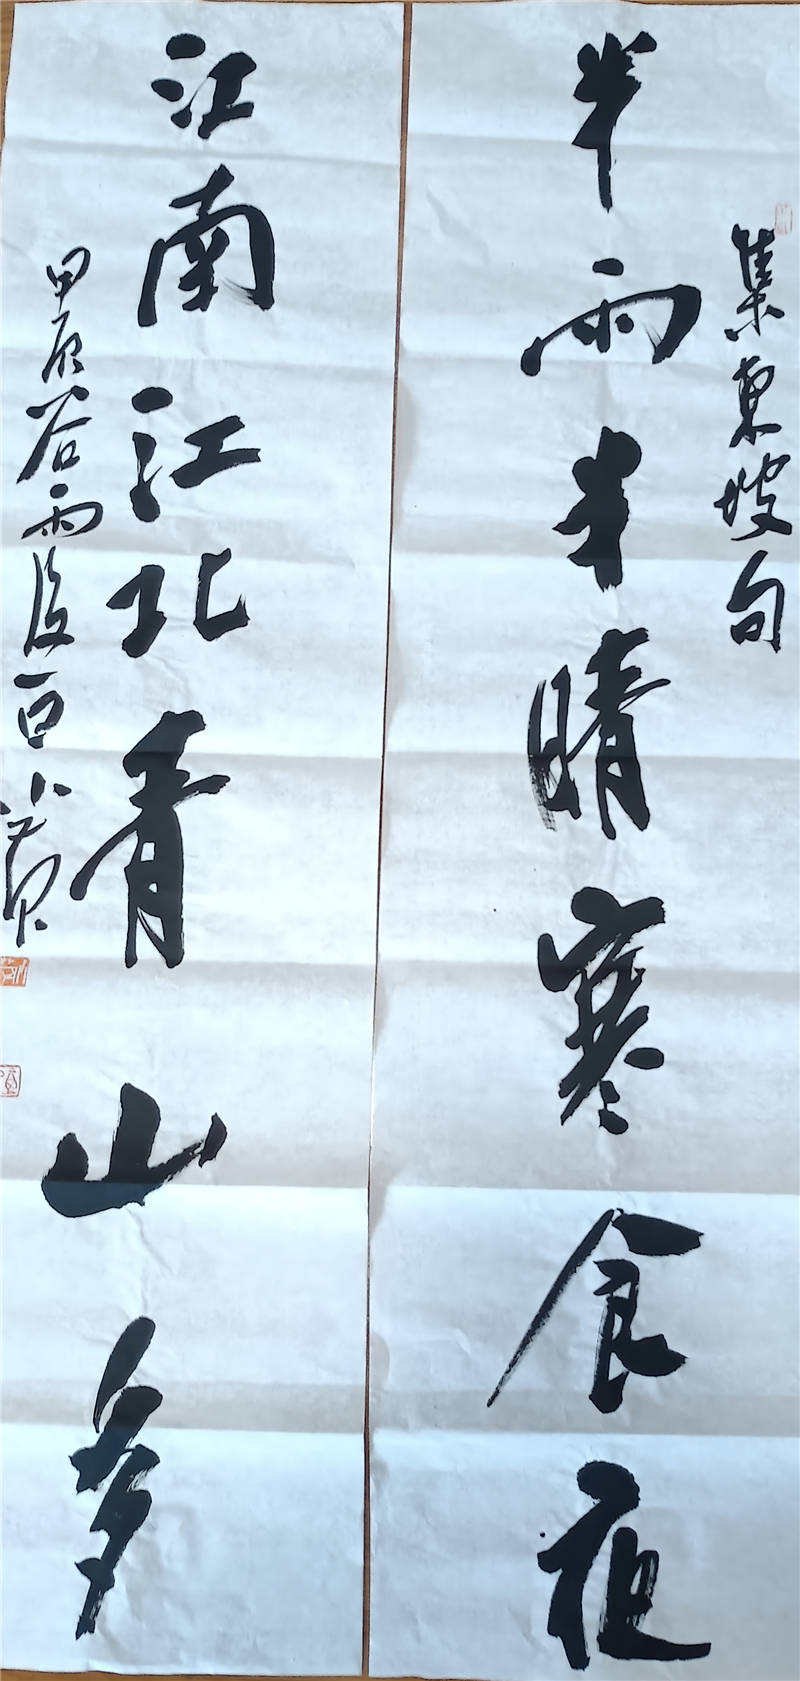 集東坡句
半雨半晴寒食夜
江南江北青山多
甲辰谷雨後